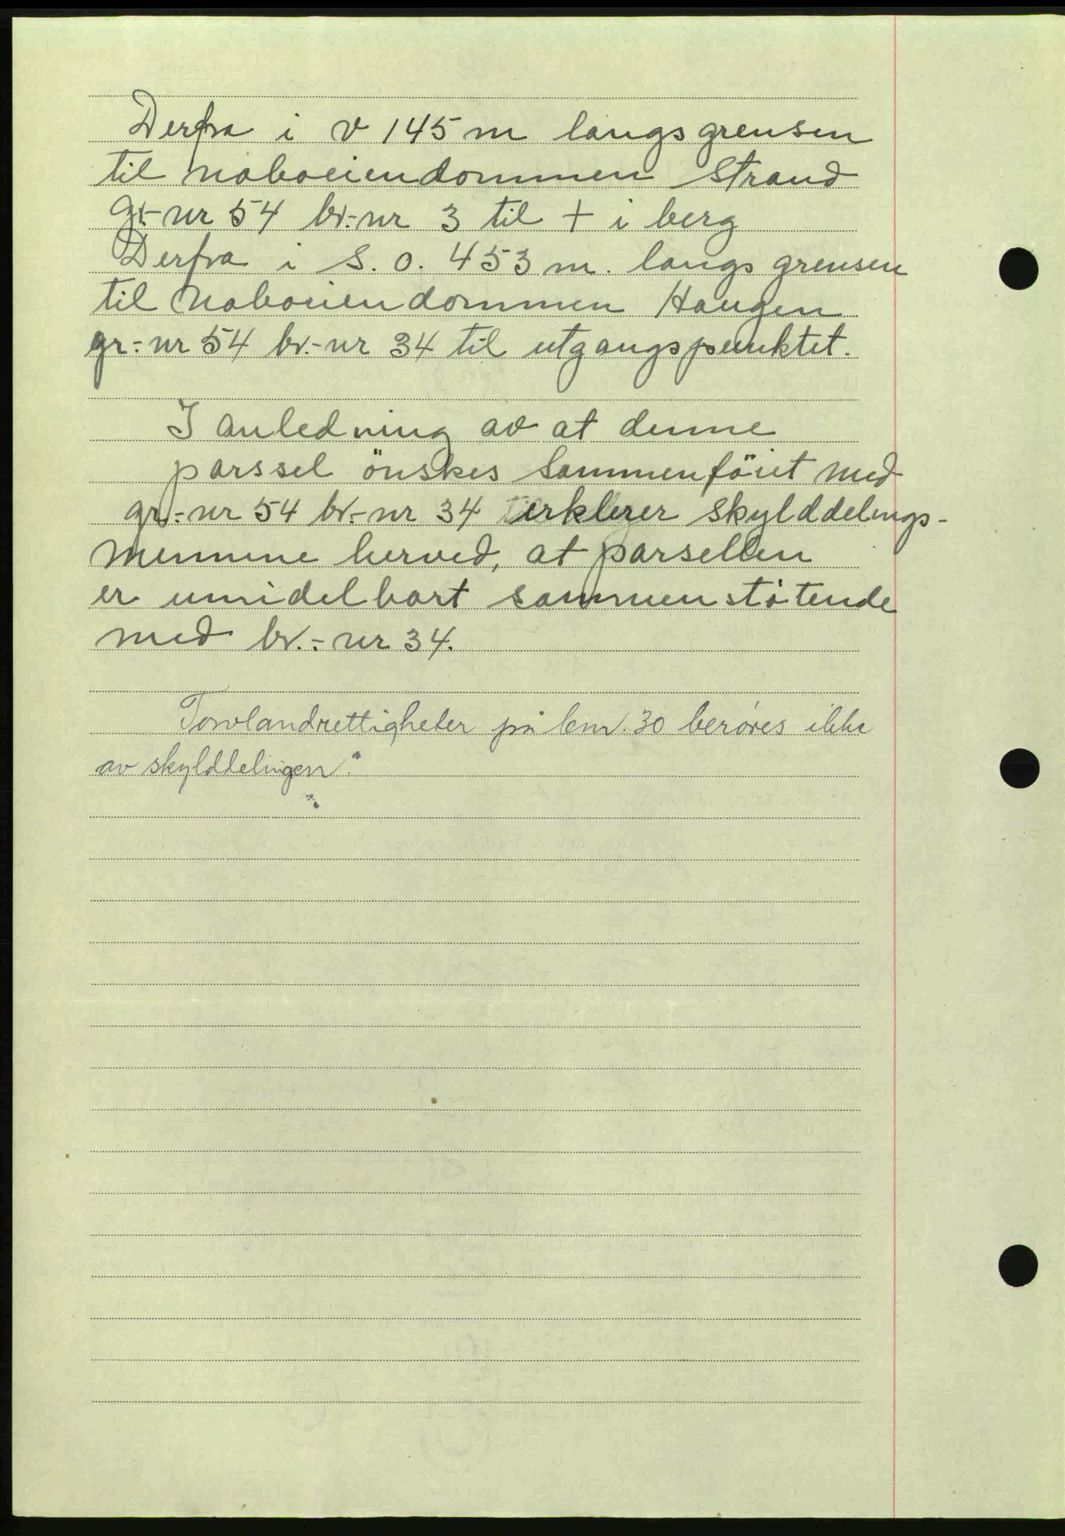 Derfra i v 145 m langs grensen
til naboeiendommen Strand
gr.-nr 54 br.-nr 3 til + i berg
Derfra i S. O. 453 m. langs grensen
til naboeiendommen Haugen
gr:-nr 54 br.-nr 34 til utgangspunktet.
I anledning av at denne
parssel önskes sammenföiet med
gr.-nr 54 br.-nr 34 erklerer skylddelings-
mennene herved, at parsellen
er umidelbart sammenstötende
med br.:-nr 34.
Torvlandrettigheter på bnr. 30 berøres ikke
av skylddelingen.